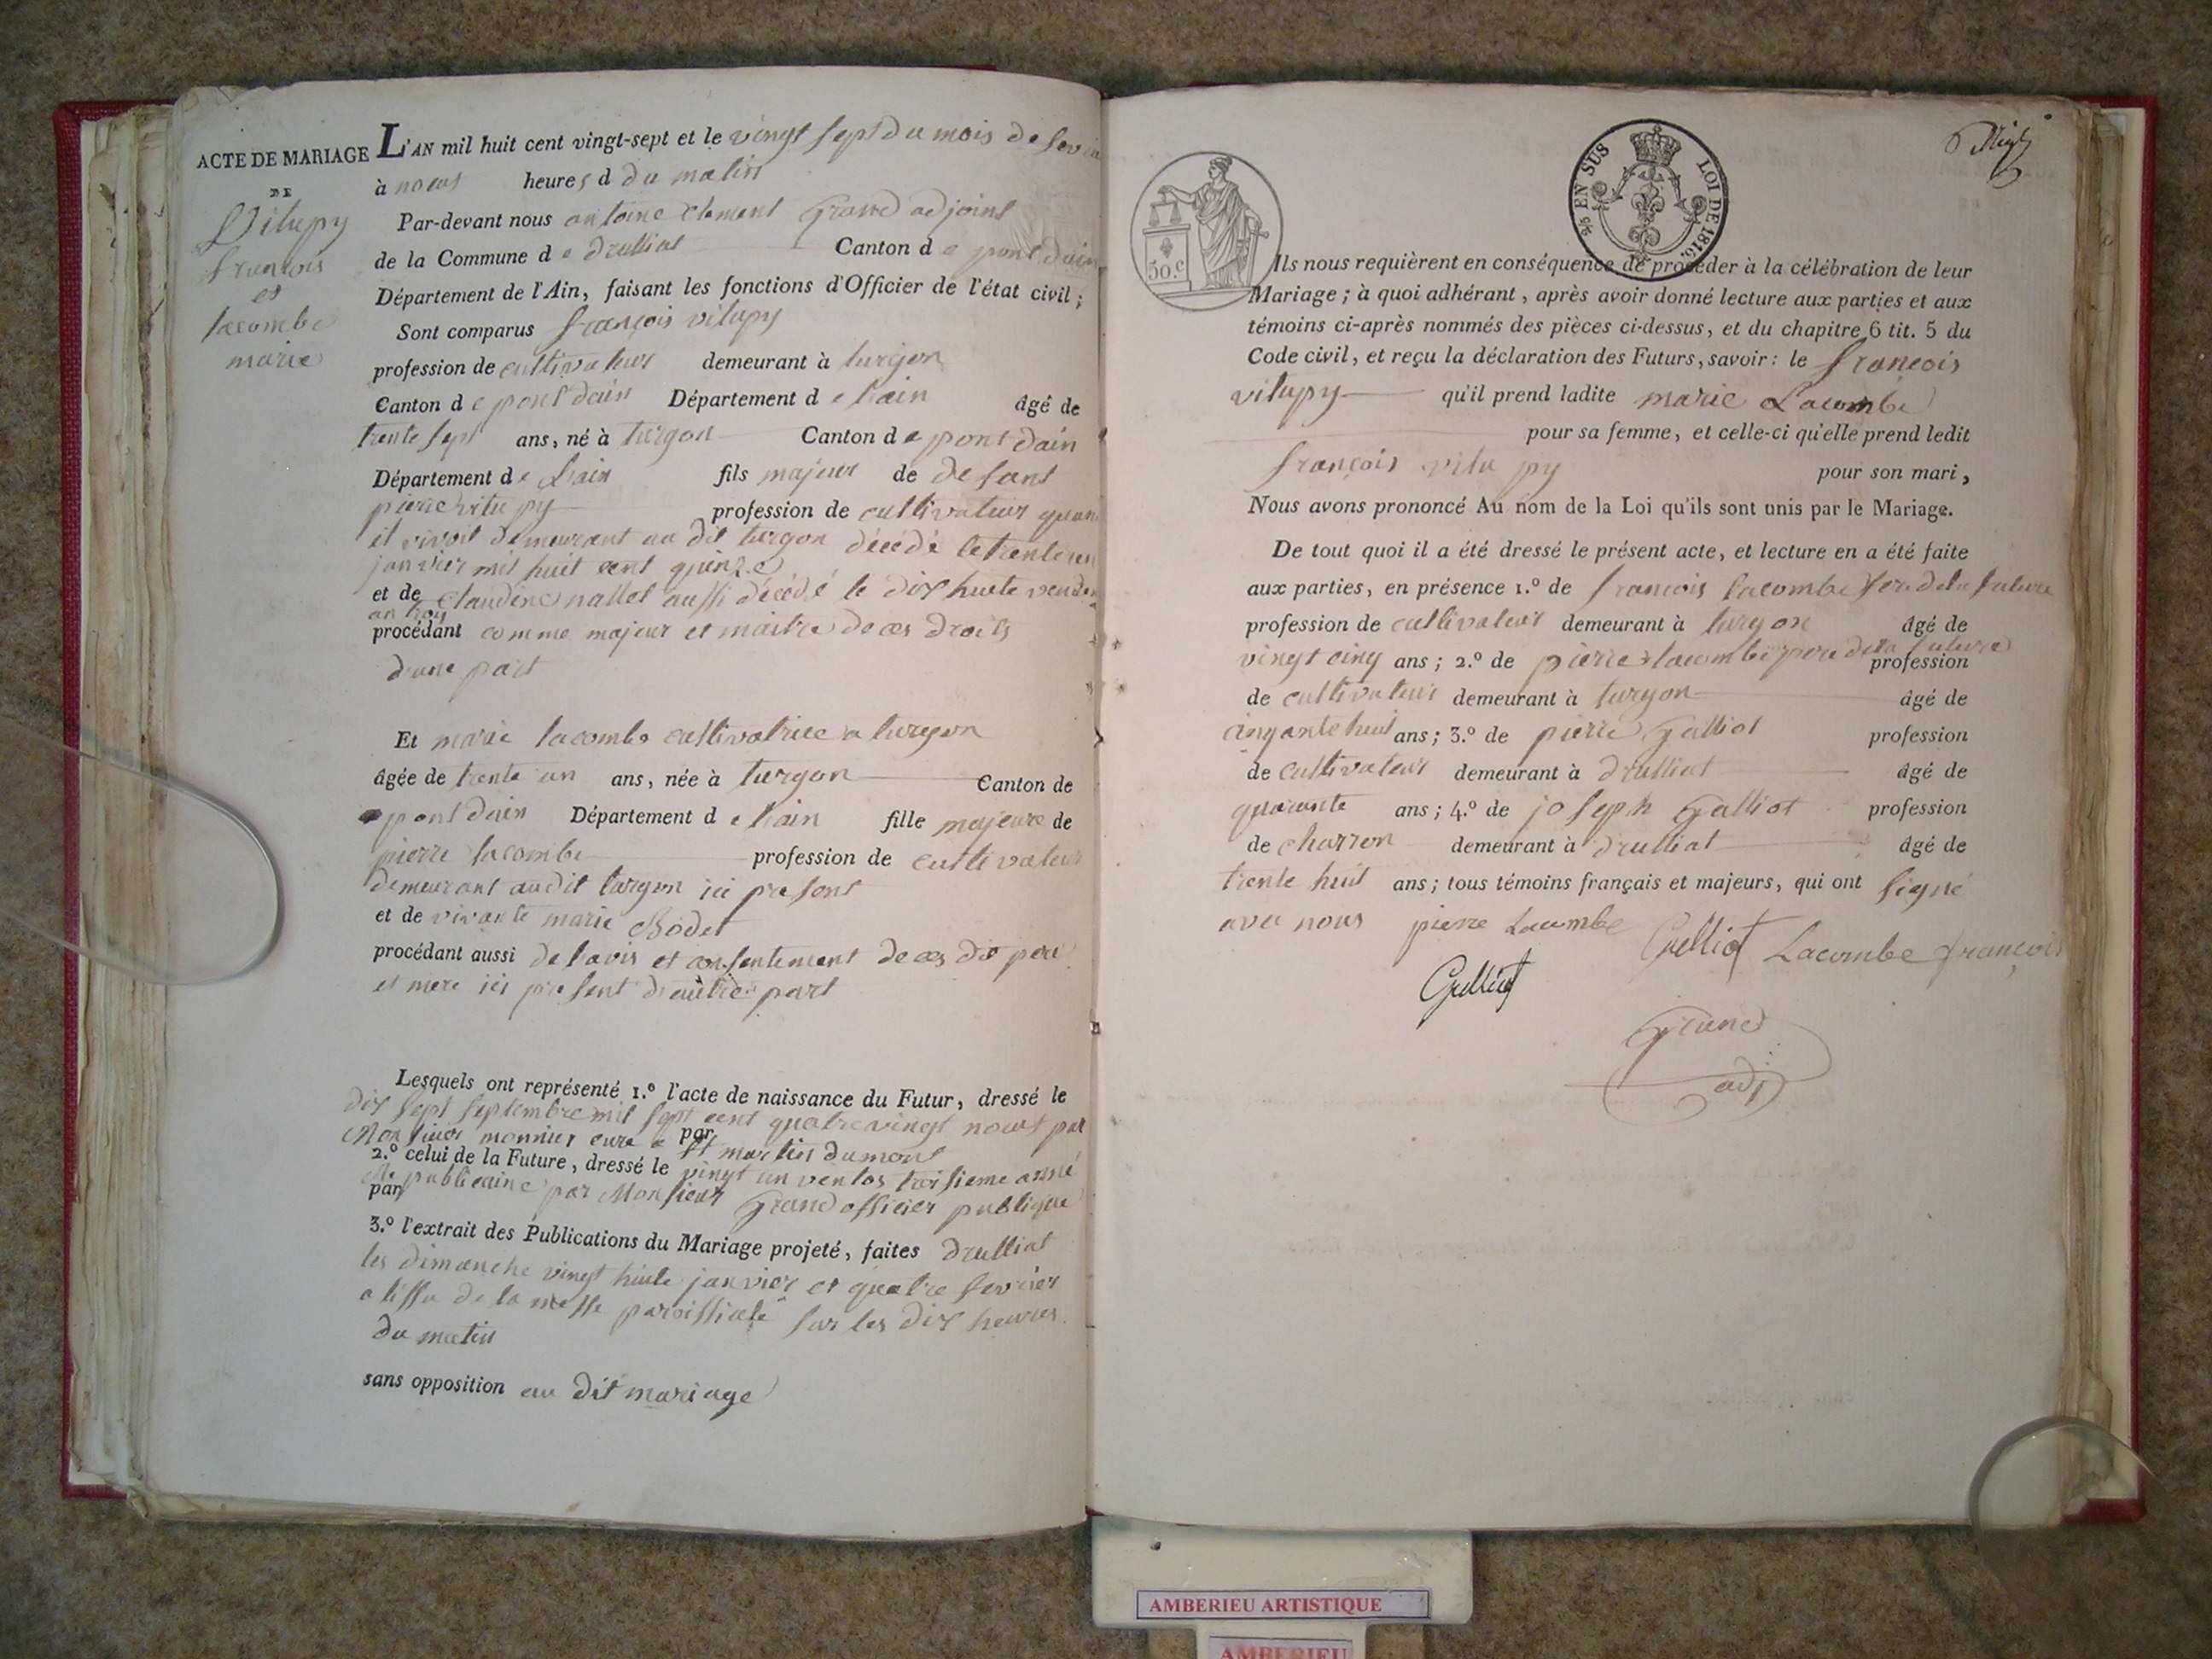 ACTE DE MARIAGE
DE
Vitupy
françois
et
lacombe
marie
L'AN mil huit cent vingt-sept et le vingt sept du mois de fevri
à neuf heures d du matin
Par-devant nous antoine clement Grand adjoint
de la Commune d e drulliat Canton d e pont dain
Département de l'Ain, faisant les fonctions d'Officier de l'état civil;
Sont comparus françois vitupy
profession de cultivateur demeurant à turgon
Canton d e pont dain Département d e lain âgé de
trente sept ans, né à turgon Canton d e pont dain
Département d e Lain fils majeur de defant
pierre vitupy profession de cultivateur quan
il vivoit demeurant au dit turgon décédé le trente un
janvier mil huit cent quinze
et de claudine nallet aussi décédé le dix huite vende
an troy
procédant comme majeur et maitre de ces droits
d'une part
Et marie lacombe cultivatrice a turgon
âgée de trente un ans, née à turgon Canton de
pont dain Département d e lain fille majeure de
pierre lacombe profession de cultivateur
demeurant au dit turgon ici present
et de vivante marie Bodet
procédant aussi de lavis et consentement de ces dit pere
et mere ici present d'autre part
Lesquels ont représenté 1.º l'acte de naissance du Futur, dressé le
dix sept septembre mil sept cent quatre vingt neuf par
par
Monsieur monnier cure a st martin dumont
2.º celui de la Future, dressé le vingt un ventos troisieme anné
par
republicaine par Monsieur Grand officier publique
3.º l'extrait des Publications du Mariage projeté, faites drulliat
les dimanche vingt huite janvier et quatre fevrier
a lissu de la messe paroissiale sur les dix heures
du matin
sans opposition au dit mariage
50.c
EN SUS LOI DE 1816.
Ils nous requièrent en conséquence de procéder à la célébration de leur
Mariage; à quoi adhérant, après avoir donné lecture aux parties et aux
témoins ci-après nommés des pièces ci-dessus, et du chapitre 6 tit. 5 du
Code civil, et reçu la déclaration des Futurs, savoir: le françois
vitupy qu'il prend ladite marie Lacombe
pour sa femme, et celle-ci qu'elle prend ledit
françois vitupy pour son mari,
Nous avons prononcé Au nom de la Loi qu'ils sont unis par le Mariage.
De tout quoi il a été dressé le présent acte, et lecture en a été faite
aux parties, en présence 1.º de françois lacombe frere de la future
profession de cultivateur demeurant à turgon âgé de
vingt cinq ans; 2.º de pierre lacombe pere de la future profession
de cultivateur demeurant à turgon âgé de
cinqante huit ans; 3.º de pierre Galliot profession
de cultivateur demeurant à drulliat âgé de
quarante ans; 4.º de joseph Galliot profession
de charron demeurant à drulliat âgé de
trente huit ans; tous témoins français et majeurs, qui ont signé
avec nous pierre Lacombe Guelliot Lacombe françois
Gulliot
Grand
adj
AMBERIEU ARTISTIQUE
AMBERIEU